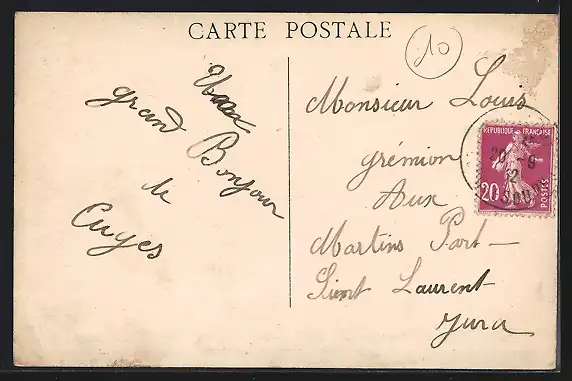 CARTE POSTALE
10
Un
grand Bonjour
de
Cuges
Monsieur Louis
grémion
Aux
Martins Part
Sint Laurent
Jura
REPUBLIQUE FRANÇAISE
20
POSTES
20 -9
12